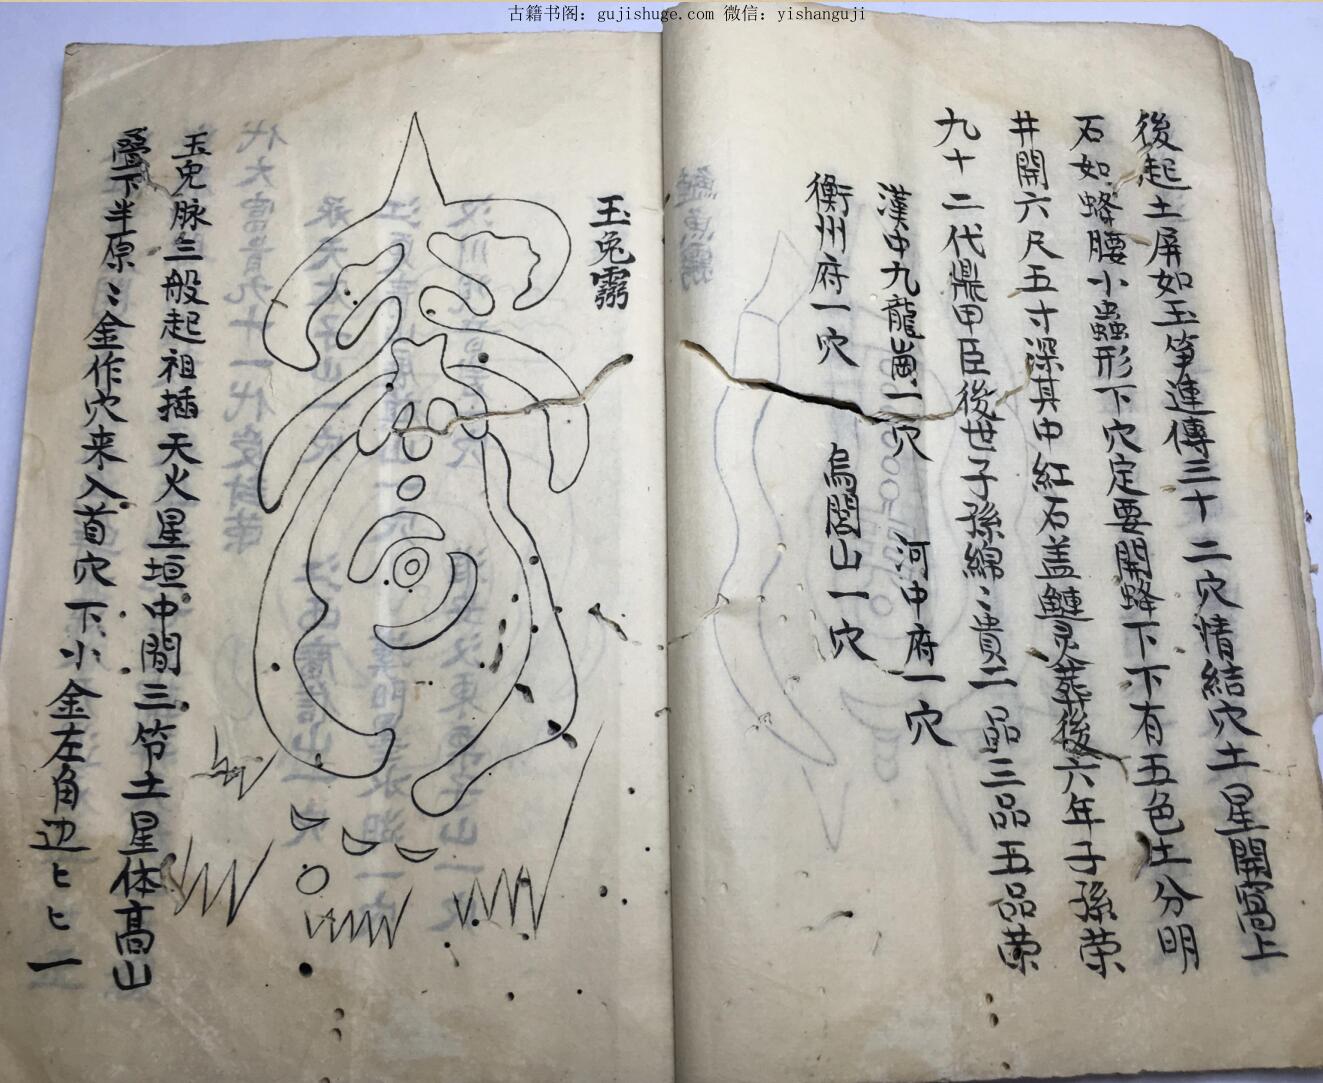 古籍书阁：gujishuge.com 微信：yishanguji
後起土屏如玉笋連傳三十二穴情結穴土星開窩上
石如蜂腰小蟲形下穴定要開蜂下下有五色土分明
井開六尺五寸深其中紅石盖鰱灵葬後六年子孫荣
九十二代鼎甲臣後世子孫綿〻貴二品三品五品荣
漢中九龍崗一穴 河中府一穴
衡州府一穴 烏閣山一穴
玉兔
玉兔脉三般起祖插天火星垣中間三节土星体高山
叠下半原〻金作穴来入首穴下小金左角边匕匕一